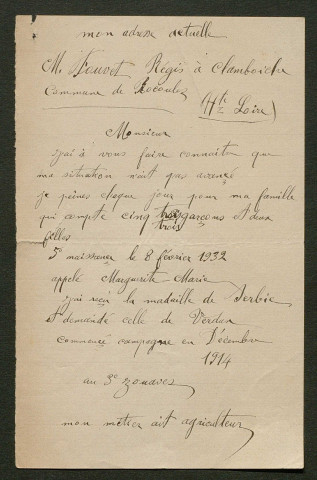 mon adresse actuelle
M. Fauvet Régis à Clamboiche
Commune de Recoules
(Hte Loire)
Monsieur
j'ai à vous faire connaitre que
ma situation n'ait pas avance
je peines chaque jour pour ma famille
qui compte cinq trois garçons et deux
trois
filles
5e naissance le 8 février 1932
appelé Marguerite-Marie
j'ai reçu la madaille de Serbie
et demandé celle de Verdun
commencé campagne en Décembre
1914
au 3e zouaves
mon métier ait agriculteur